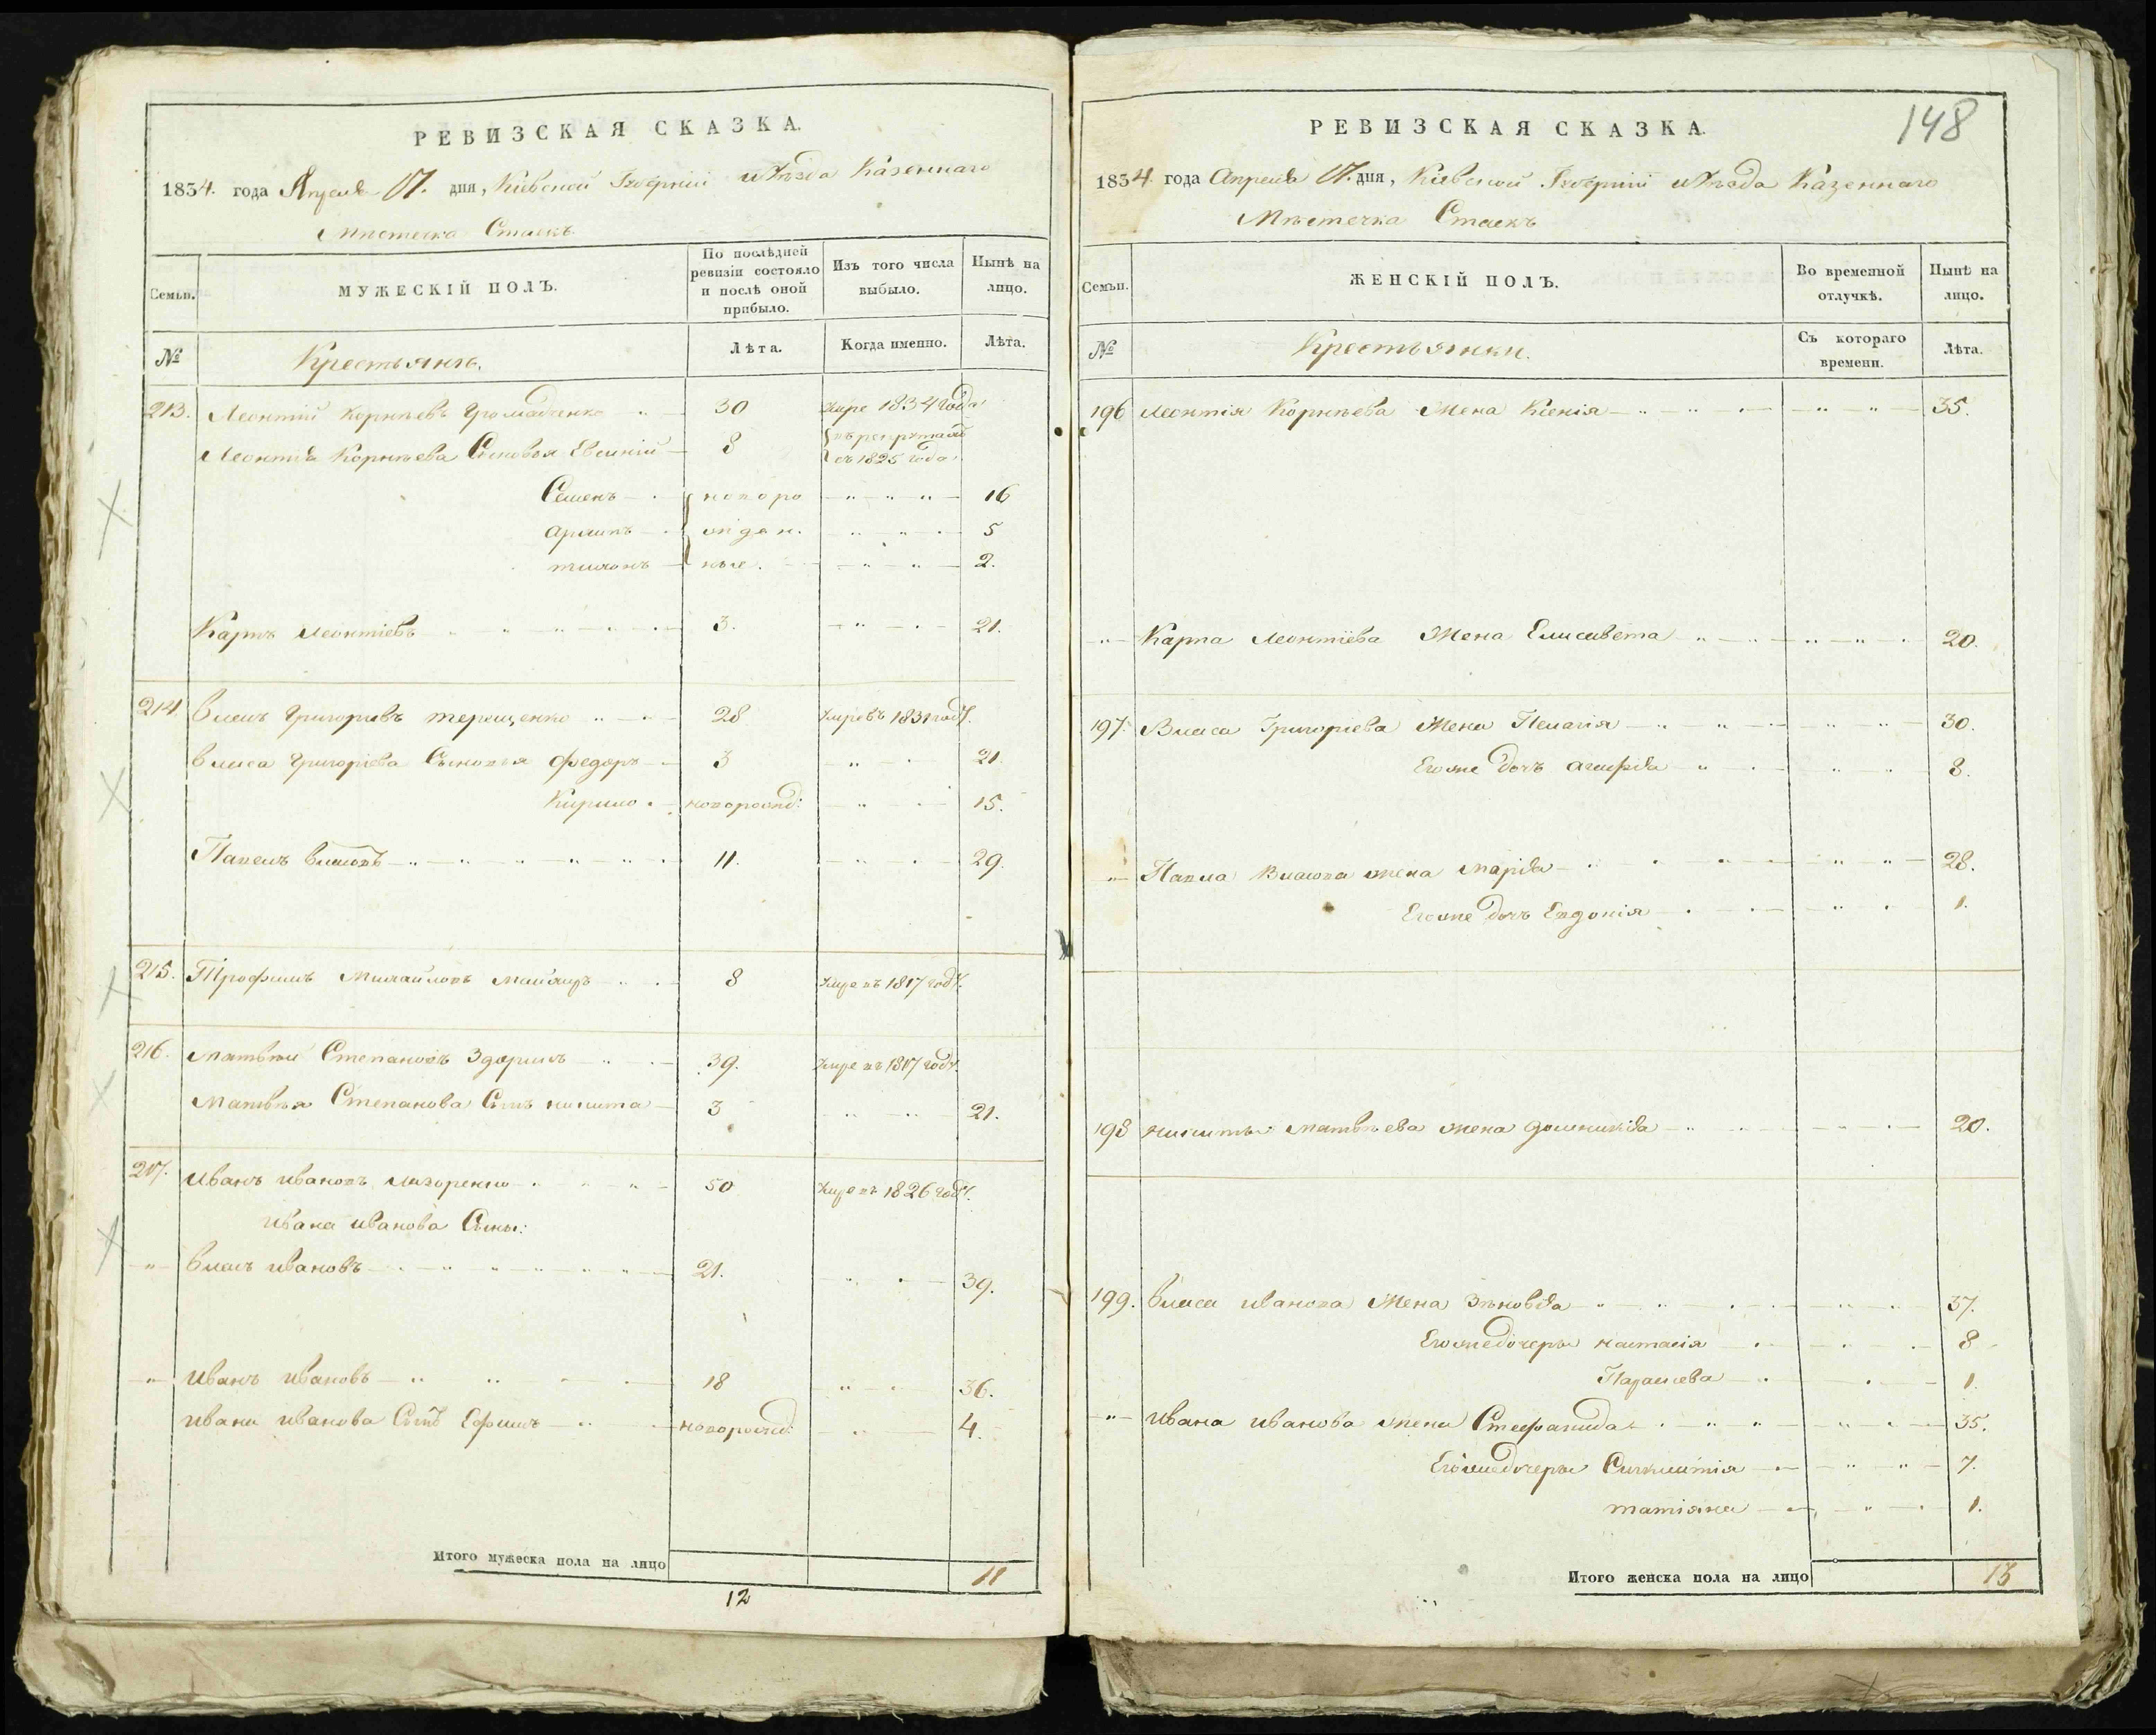 РЕВИЗСКАЯ СКАЗКА.
1834. года Апреля 17. дня, Кіевской Губерніи и Уѣзда Казеннаго
Мѣстечка Стаекъ
Семьи.
МУЖЕСКІЙ ПОЛЪ.
По послѣдней ревизіи состояло и послѣ оной прибыло.
Изъ того числа выбыло.
Нынѣ на лицо.
№
Крестьянъ.
Лѣта.
Когда именно.
Лѣта.
213. Леонтій Корнѣевъ Громадченко 30 умре 1834 года
Леонтія Корнѣева Сыновья Евсиній 8 съ 1825 года
Семенъ новоро 16
Архипъ жден. 5
тихонъ ные. 2.
Карпъ Леонтіевъ 3. 21.
214. Власъ Григорьевъ терещенко 28 умре въ 1831 году.
Власа Григоріева Сыновья федоръ 3 21.
Кирило новорожд: 15.
Павелъ Власовъ 11. 29.
215. Трофимъ Михайловъ 8 умре въ 1817 году.
216. Матвѣй Степановъ 39. умре въ 1817 году.
Матвѣя Степанова Сынъ никита 3 21.
217. Иванъ Ивановъ Лазоренко 50 умре въ 1826 году.
Ивана Иванова Сыны:
" Власъ Ивановъ 21. 39.
" Иванъ Ивановъ 18 36.
Ивана Иванова Сынъ Ефимъ новорожд: 4.
Итого мужеска пола на лицо 11
12
148
РЕВИЗСКАЯ СКАЗКА.
1834 года Апреля 17. дня, Кіевской Губерніи и Уѣзда Казеннаго
Мѣстечка Стаекъ
Семьи.
ЖЕНСКІЙ ПОЛЪ.
Во временной отлучкѣ.
Нынѣ на лицо.
№
Крестьянки.
Съ котораго времени.
Лѣта.
196 Леонтія Корнѣева Жена Ксенія 35.
" Карпа Леонтіева Жена Елисавета 20.
197. Власа Григорьева Жена Пелагія 30.
Его же дочь Агафія 8.
" Павла Власова жена Марія 28.
Его же дочь Евдокія 1.
198 никиты Матвѣева жена Домникія 20.
199. Власа Иванова Жена Зѣновія 37.
Его же дочеры настасія 8
Параскева 1.
" Ивана Иванова жена Стефанида 35.
Его же дочеры 7.
татіяна 1.
Итого женска пола на лицо 13